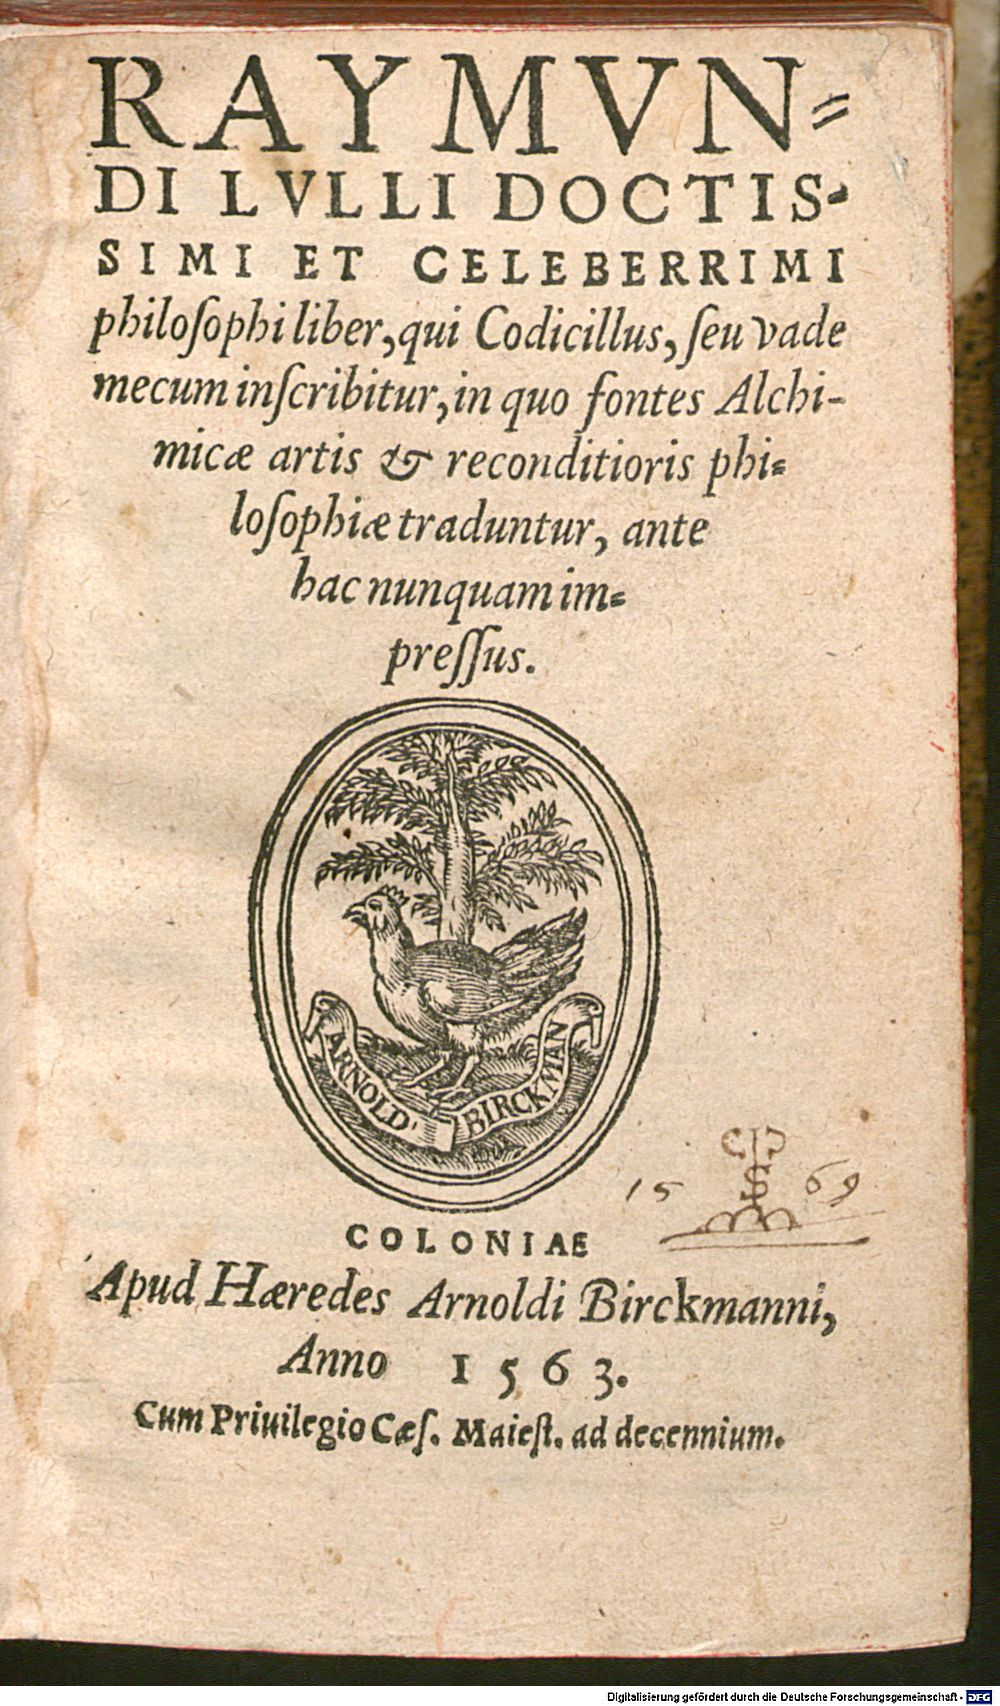 RAYMVN=
DI LVLLI DOCTIS-
SIMI ET CELEBERRIMI
philoſophi liber, qui Codicillus, ſeu vade
mecum inſcribitur, in quo fontes Alchi-
micæ artis & reconditioris phi=
loſophiæ traduntur, ante
hac nunquam im=
preſſus.
ARNOLD. BIRCKMAN
15 69
COLONIAE
Apud Hæredes Arnoldi Birckmanni,
Anno 1563.
Cum Priuilegio Cæſ. Maieſt. ad decennium.
Digitalisierung gefördert durch die Deutsche Forschungsgemeinschaft - DFG